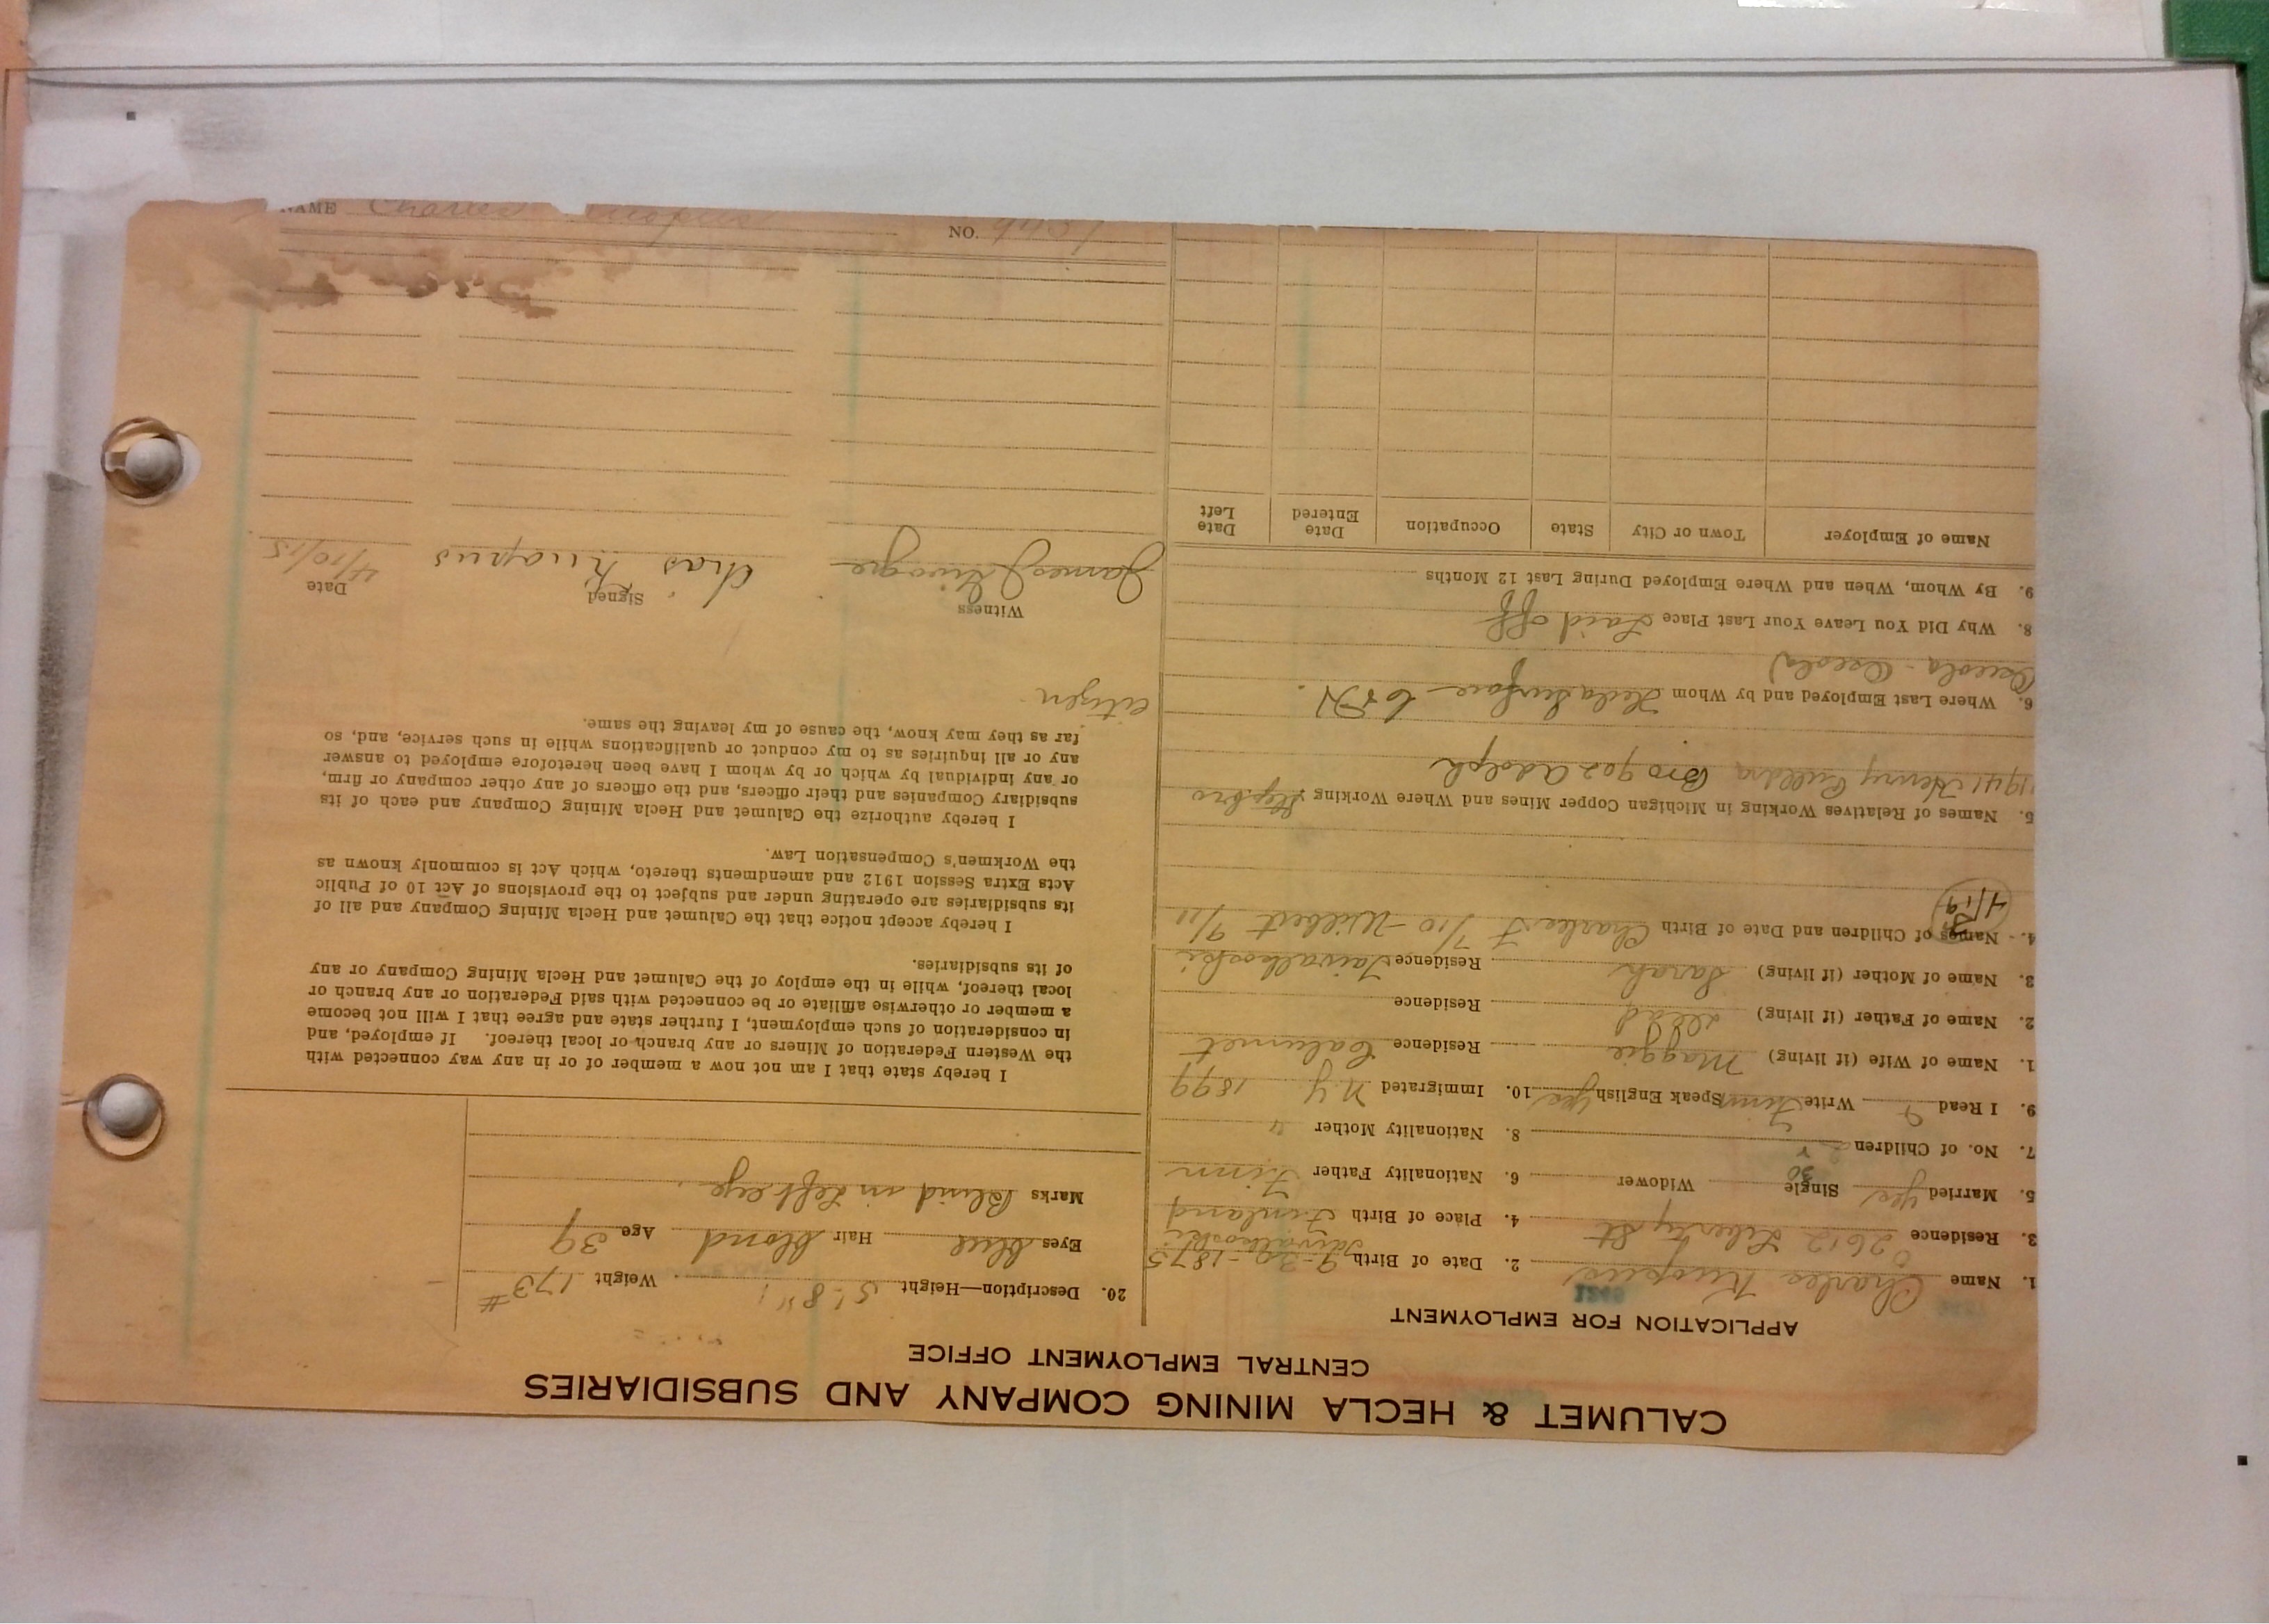 CALUMET & HECLA MINING COMPANY AND SUBSIDIARIES
CENTRAL EMPLOYMENT OFFICE
APPLICATION FOR EMPLOYMENT
1. Name Charles Kuopus 2. Date of Birth 9-30-1875
3. Residence 2612 Liberty St 4. Place of Birth Finland
Taivalkoski
5. Married Yes Single Widower 6. Nationality Father Finn
30
7. No. of Children 2 8. Nationality Mother "
9. I Read Write Finn Speak English Yes 10. Immigrated N.Y 1899
1. Name of Wife (if living) Maggie Residence Calumet
2. Name of Father (if living) dead Residence
3. Name of Mother (if living) Sarah Residence Taivalkoski
4. Names of Children and Date of Birth Charles F 7/10 - Wilbert 9/11
5. Names of Relatives Working in Michigan Copper Mines and Where Working Step bro
1941 Henry Bro 902 Adolph
6. Where Last Employed and by Whom Hecla Surface C & H.
Osceola - Osceola
8. Why Did You Leave Your Last Place Laid off
9. By Whom, When and Where Employed During Last 12 Months
Name of Employer Town or City State Occupation Date Entered Date Left
20. Description—Height 5' 8" Weight 173#
Eyes blue Hair blond Age 39
Marks Blind in left eye.
I hereby state that I am not now a member of or in any way connected with
the Western Federation of Miners or any branch or local thereof. If employed, and
in consideration of such employment, I further state and agree that I will not become
a member or otherwise affiliate or be connected with said Federation or any branch or
local thereof, while in the employ of the Calumet and Hecla Mining Company or any
of its subsidiaries.
I hereby accept notice that the Calumet and Hecla Mining Company and all of
its subsidiaries are operating under and subject to the provisions of Act 10 of Public
Acts Extra Session 1912 and amendments thereto, which Act is commonly known as
the Workmen's Compensation Law.
I hereby authorize the Calumet and Hecla Mining Company and each of its
subsidiary Companies and their officers, and the officers of any other company or firm,
or any individual by which or by whom I have been heretofore employed to answer
any or all inquiries as to my conduct or qualifications while in such service, and, so
far as they may know, the cause of my leaving the same.
citizen
Witness Signed Date
James Chas Kuopus 4/10/15
NAME Charles Kuopus NO.